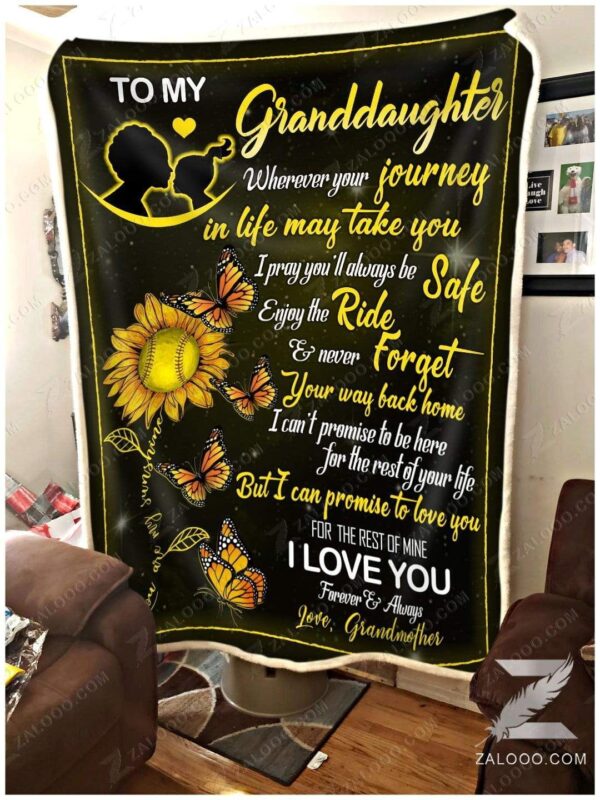 TO MY
Granddaughter
Wherever your journey
in life may take you
I pray you'll always be Safe
Enjoy the Ride
& never Forget
Your way back home
I can't promise to be here
for the rest of your life
But I can promise to love you
FOR THE REST OF MINE
I LOVE YOU
Forever & Always
Love, Grandmother
you are my sunshine
Live
Laugh
Love
ZALOOO.COM